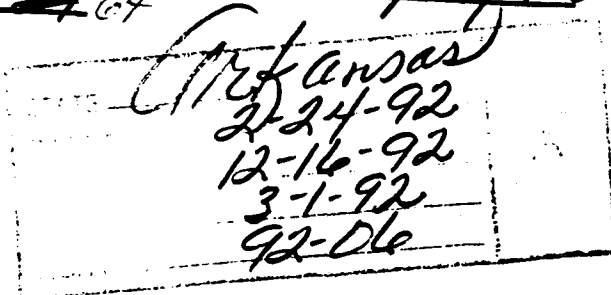 Arkansas
2-24-92
12-16-92
3-1-92
92-06